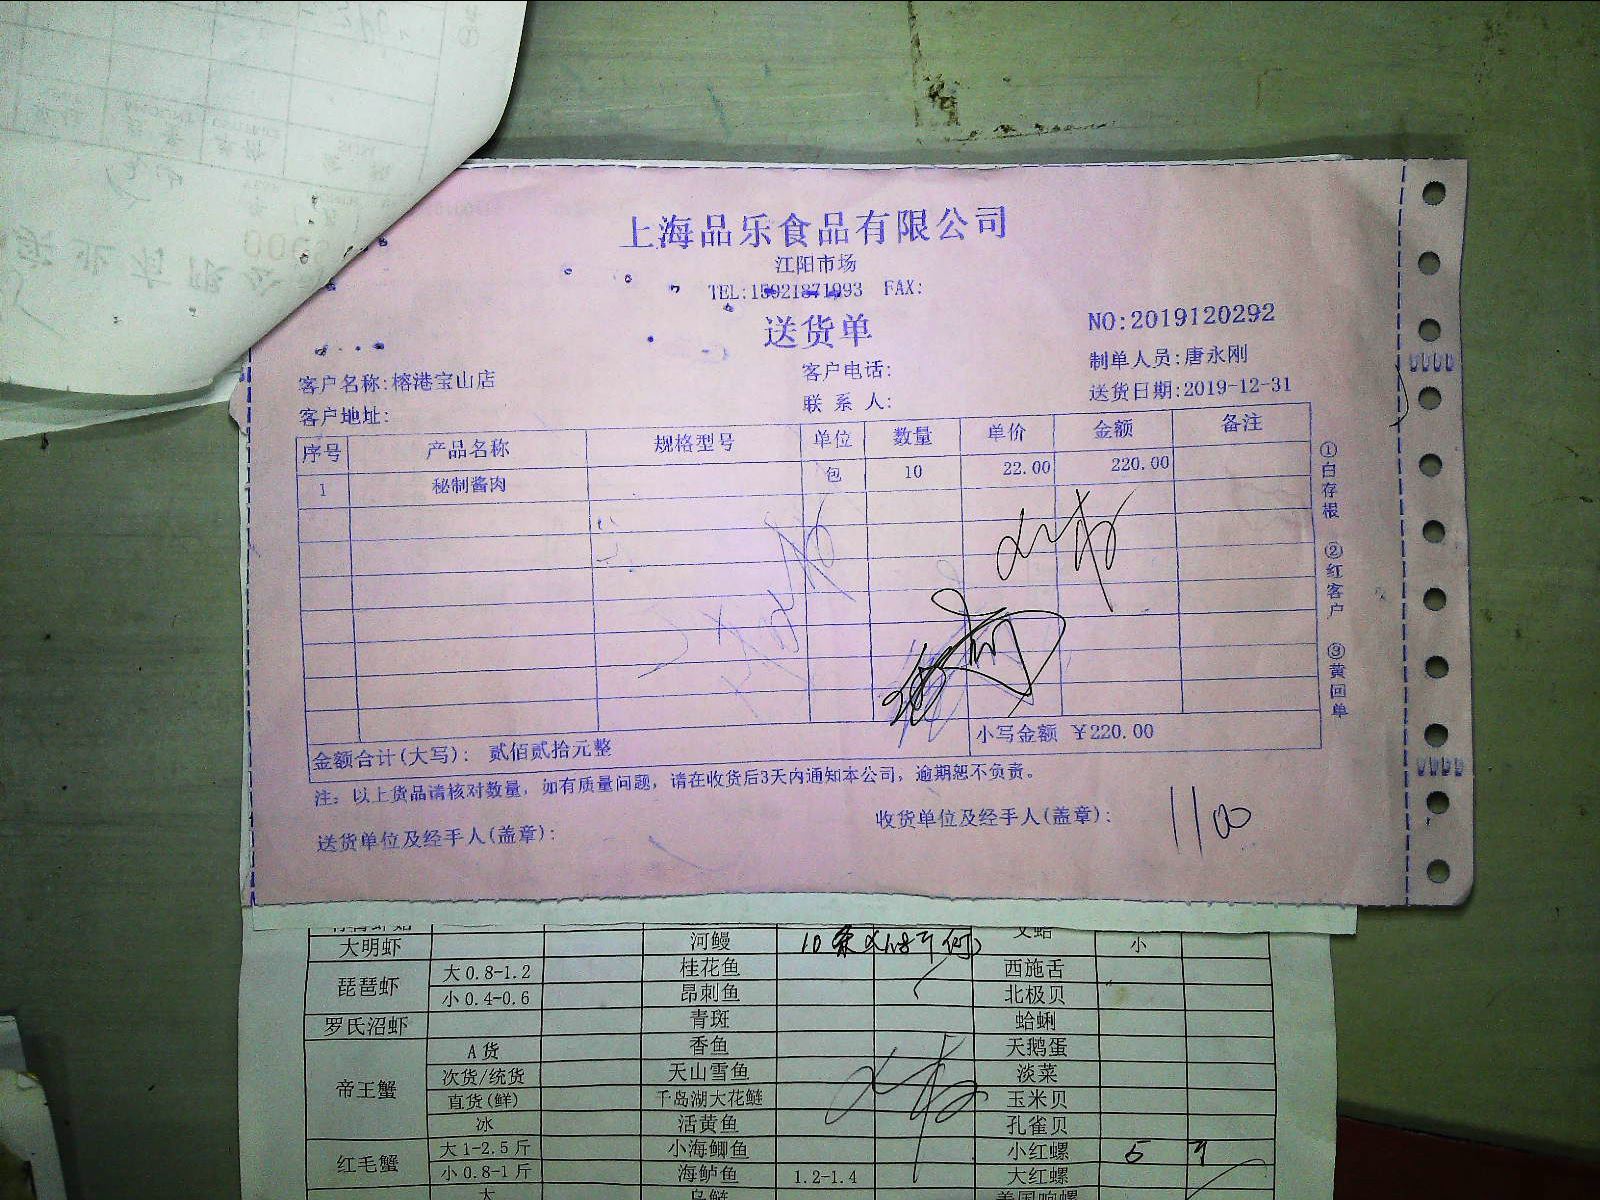 上海品乐食品有限公司
江阳市场
TEL:15921871093 FAX:
送货单
NO:2019120292
制单人员:唐永刚
客户名称:榕港宝山店
客户电话:
送货日期:2019-12-31
客户地址:
联 系 人:
序号 产品名称 规格型号 单位 数量 单价 金额 备注
1 秘制酱肉 包 10 22.00 220.00
金额合计(大写): 贰佰贰拾元整 小写金额 ¥220.00
注: 以上货品请核对数量, 如有质量问题, 请在收货后3天内通知本公司, 逾期恕不负责。
送货单位及经手人(盖章): 收货单位及经手人(盖章):
1100
①白存根 ②红客户 ③黄回单
大明虾 河鳗 10条 文蛤 小
琵琶虾 大0.8-1.2 桂花鱼 西施舌
小0.4-0.6 昂刺鱼 北极贝
罗氏沼虾 青斑 蛤蜊
帝王蟹 A货 香鱼 天鹅蛋
次货/统货 天山雪鱼 淡菜
直货(鲜) 千岛湖大花鲢 玉米贝
冰 活黄鱼 孔雀贝
红毛蟹 大1-2.5斤 小海鲫鱼 小红螺 5
小0.8-1斤 海鲈鱼 1.2-1.4 大红螺
大 乌鲢 美国响螺